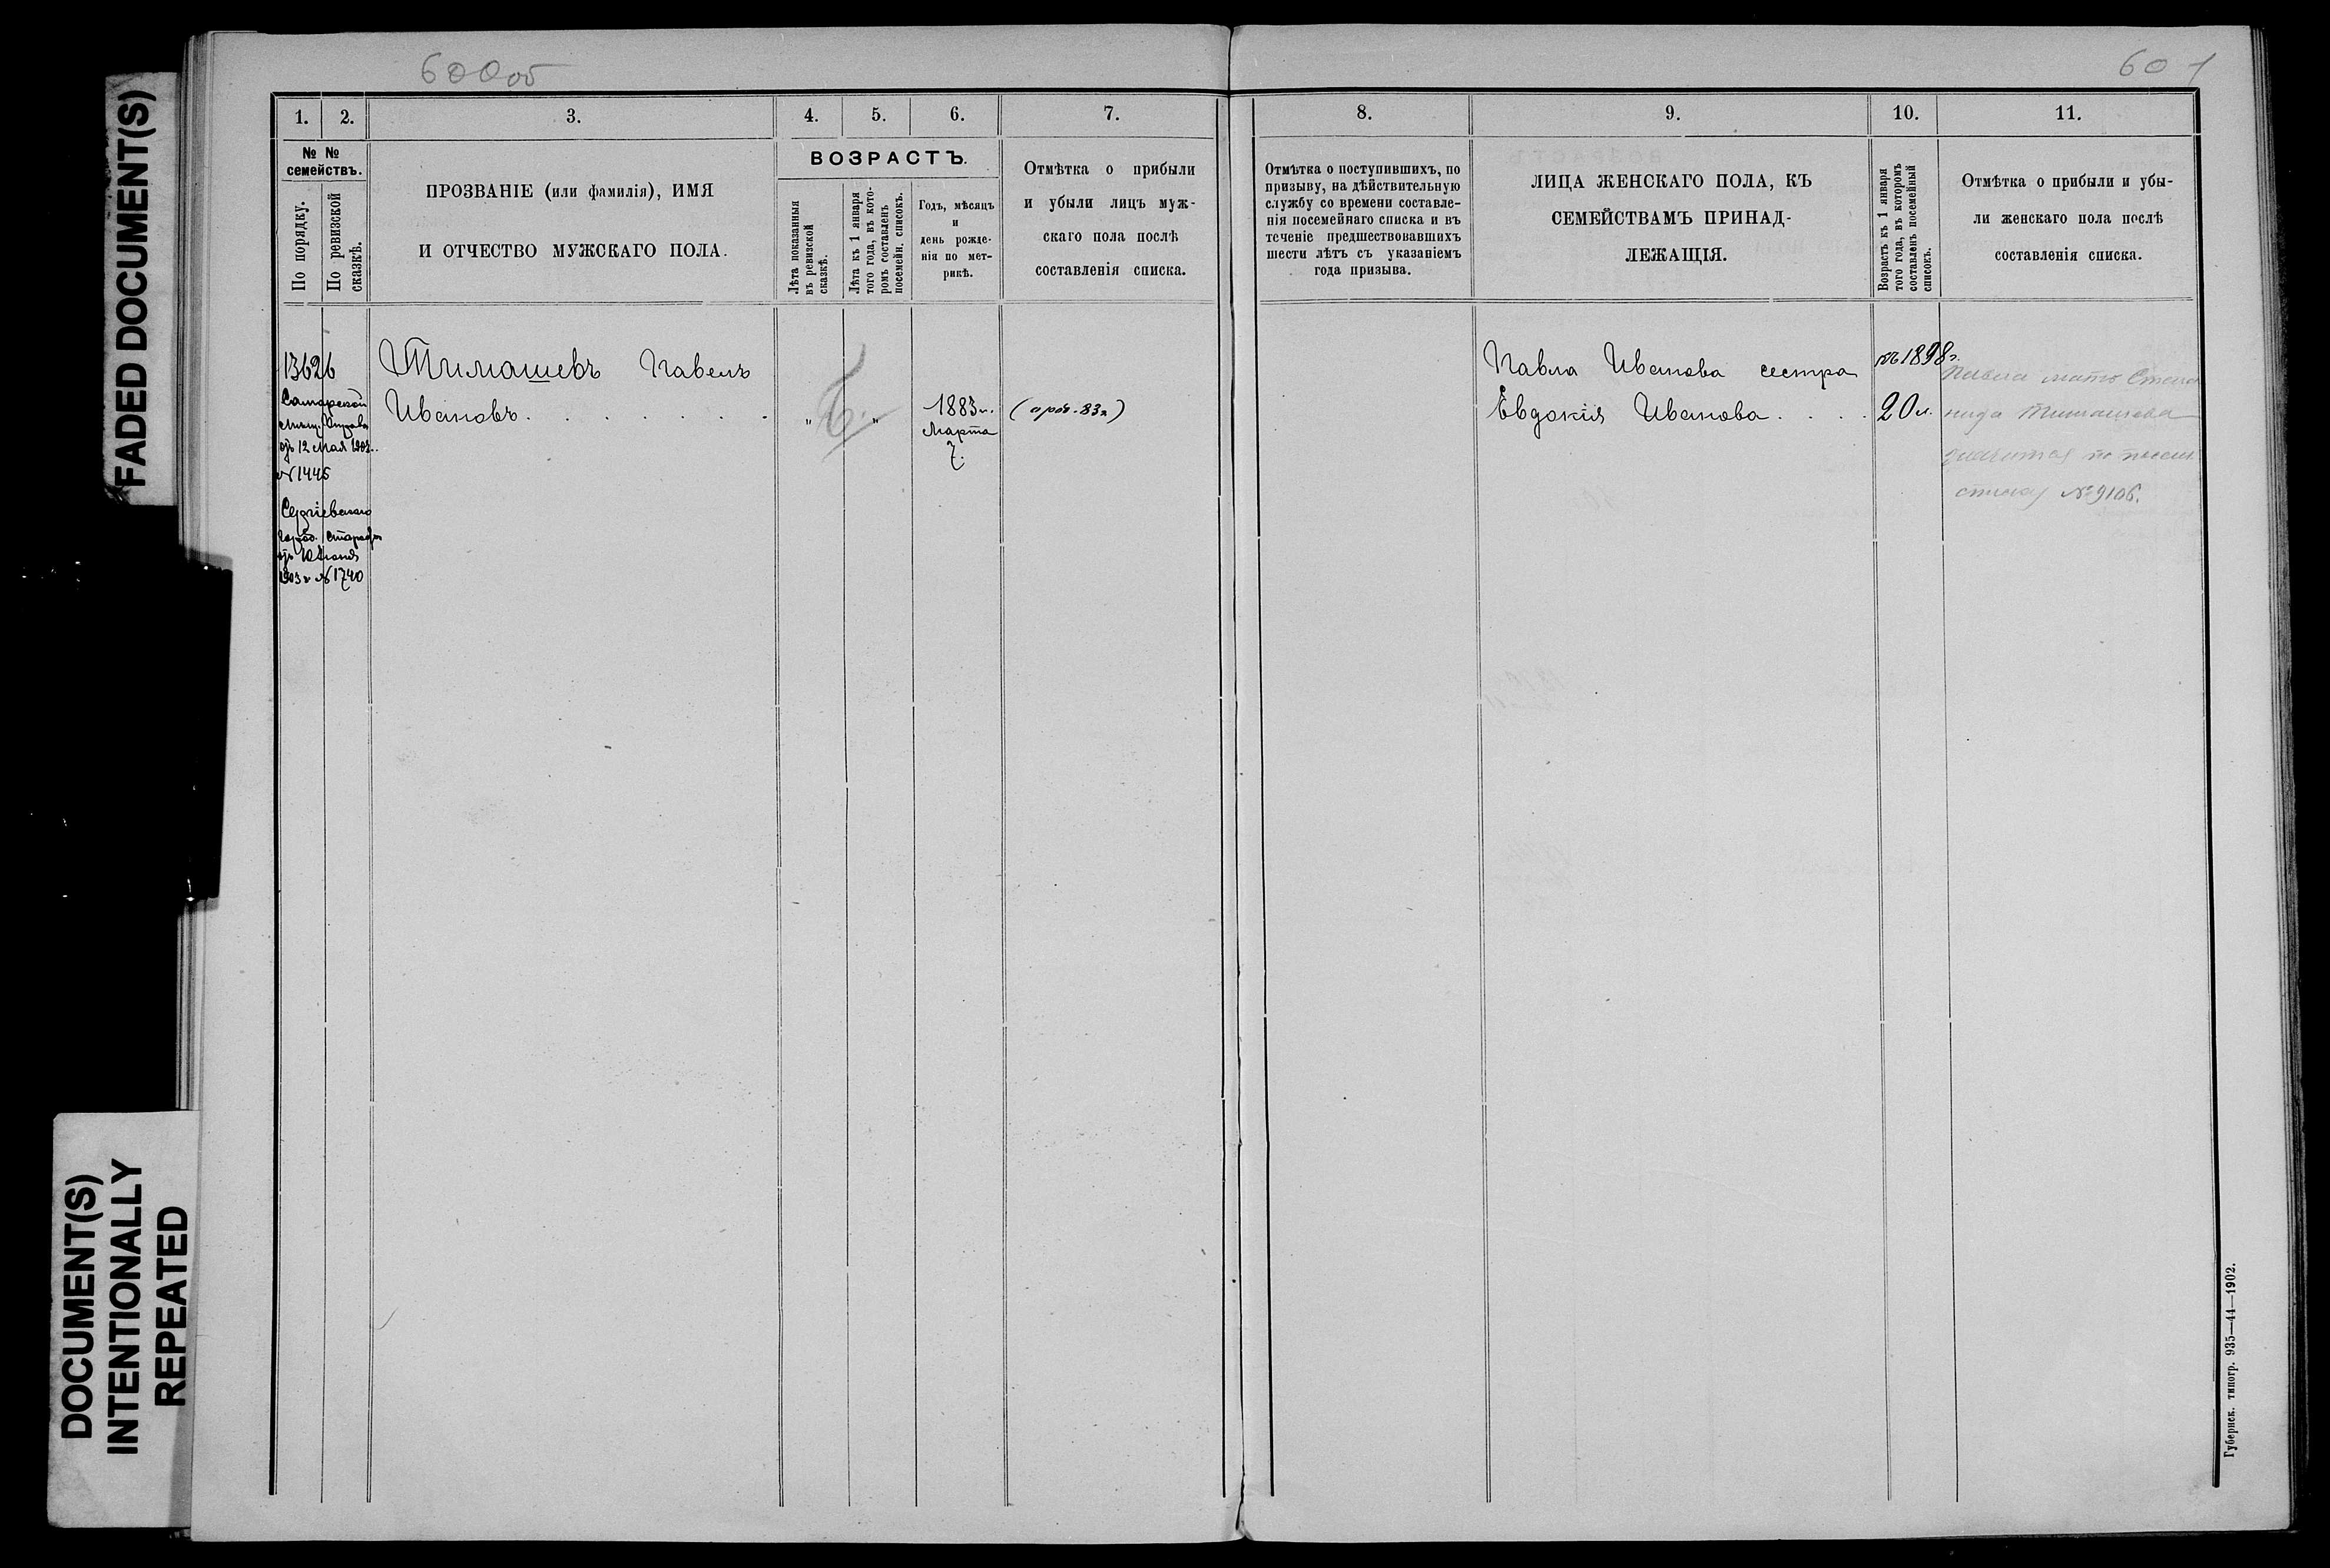 FADED DOCUMENT(S)
DOCUMENT(S)
INTENTIONALLY
REPEATED
600об
601
1.
2.
3.
4.
5.
6.
7.
№ №
семействъ.
По порядку.
По ревизской
сказкѣ.
ПРОЗВАНІЕ (или фамилія), ИМЯ
И ОТЧЕСТВО МУЖСКАГО ПОЛА.
ВОЗРАСТЪ.
Лѣта показанныя
въ ревизской
сказкѣ.
Лѣта къ 1 января
того года, въ кото-
ромъ составленъ
посемейн. списокъ.
Годъ, мѣсяцъ
и
день рожде-
нія по мет-
рикѣ.
Отмѣтка о прибыли
и убыли лицъ муж-
скаго пола послѣ
составленія списка.
8.
9.
10.
11.
Отмѣтка о поступившихъ, по
призыву, на дѣйствительную
службу со времени составле-
нія посемейнаго списка и въ
теченіе предшествовавшихъ
шести лѣтъ съ указаніемъ
года призыва.
ЛИЦА ЖЕНСКАГО ПОЛА, КЪ
СЕМЕЙСТВАМЪ ПРИНАД-
ЛЕЖАЩІЯ.
Возрастъ къ 1 января
того года, въ которомъ
составленъ посемейный
списокъ.
Отмѣтка о прибыли и убы-
ли женскаго пола послѣ
составленія списка.
13626
Самарской
мѣщ. Управы
отъ 12 мая 1903 г.
№ 1445
Сергіевскаго
город. старосты
отъ 10 Іюня
1903 г. № 1740
Тимашевъ Павелъ
Ивановъ . . . . . . .
"
"
1883 г.
Марта
7.
(пр. 83 г)
Павла Иванова сестра
Евдокія Иванова . . . .
къ 1898 г.
20 л.
Павла мать Степа
нида Тимашева
значится по посем.
списку № 9106.
Губернск. типогр. 935—44—1902.